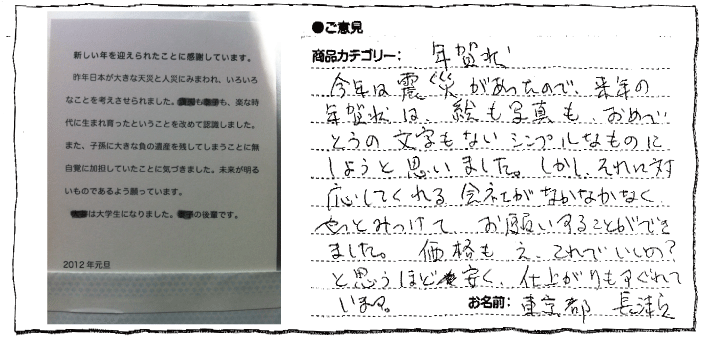 新しい年を迎えられたことに感謝しています。
昨年日本が大きな天災と人災にみまわれ、いろいろ
なことを考えさせられました。も も、楽な時
代に生まれ育ったということを改めて認識しました。
また、子孫に大きな負の遺産を残してしまうことに無
自覚に加担していたことに気づきました。未来が明る
いものであるよう願っています。
は大学生になりました。 の後輩です。
2012年元旦
●ご意見
商品カテゴリー: 年賀状
今年は震災があったので、来年の
年賀状は、絵も写真も、おめで
とうの文字もないシンプルなものに
しようと思いました。しかし、それに対
応してくれる会社がなかなかなく
やっとみつけて、お願いすることができ
ました。価格もえ、これでいいの?
と思うほど安く、仕上がりもすぐれて
います。 お名前: 東京都